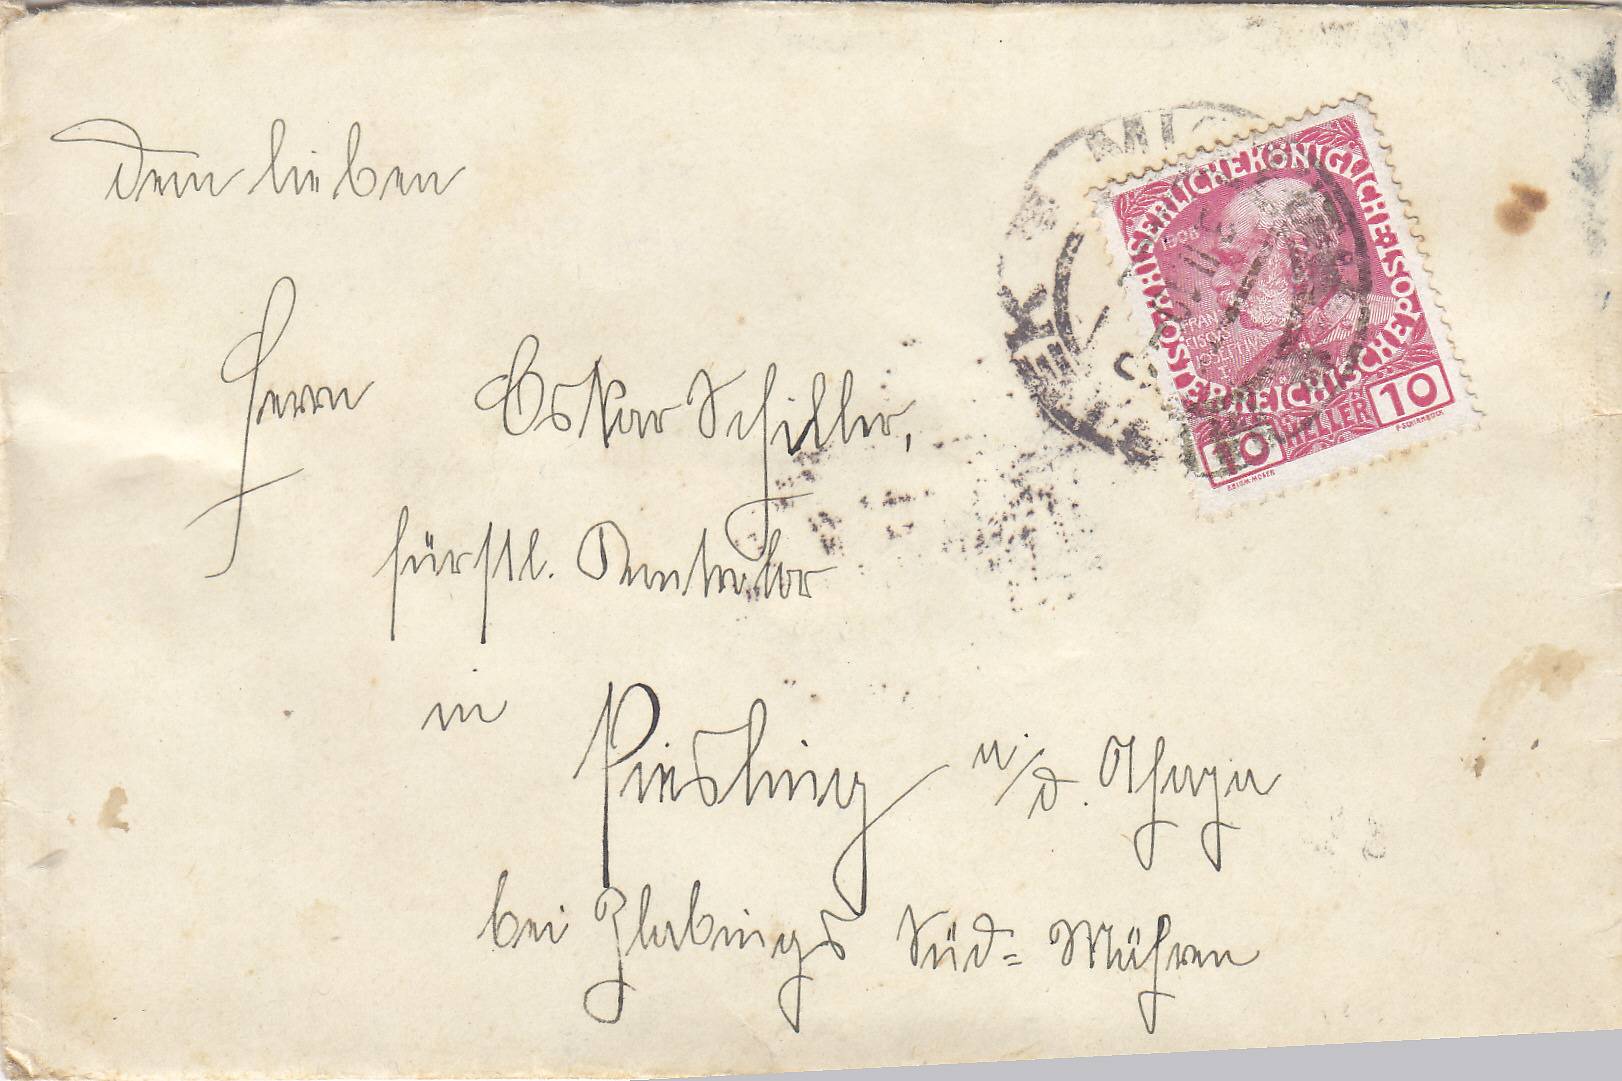 Dem lieben
Herrn Oskar Schiller,
fürstl. Rentverwalter
in
Piesling a/d. Thaya
bei Zlabings Süd= Mähren
KAISERLICHE KÖNIGLICHE
ÖSTERREICHISCHE POST
1908
FRAN
CISC
IOSEF
10 HELLER 10